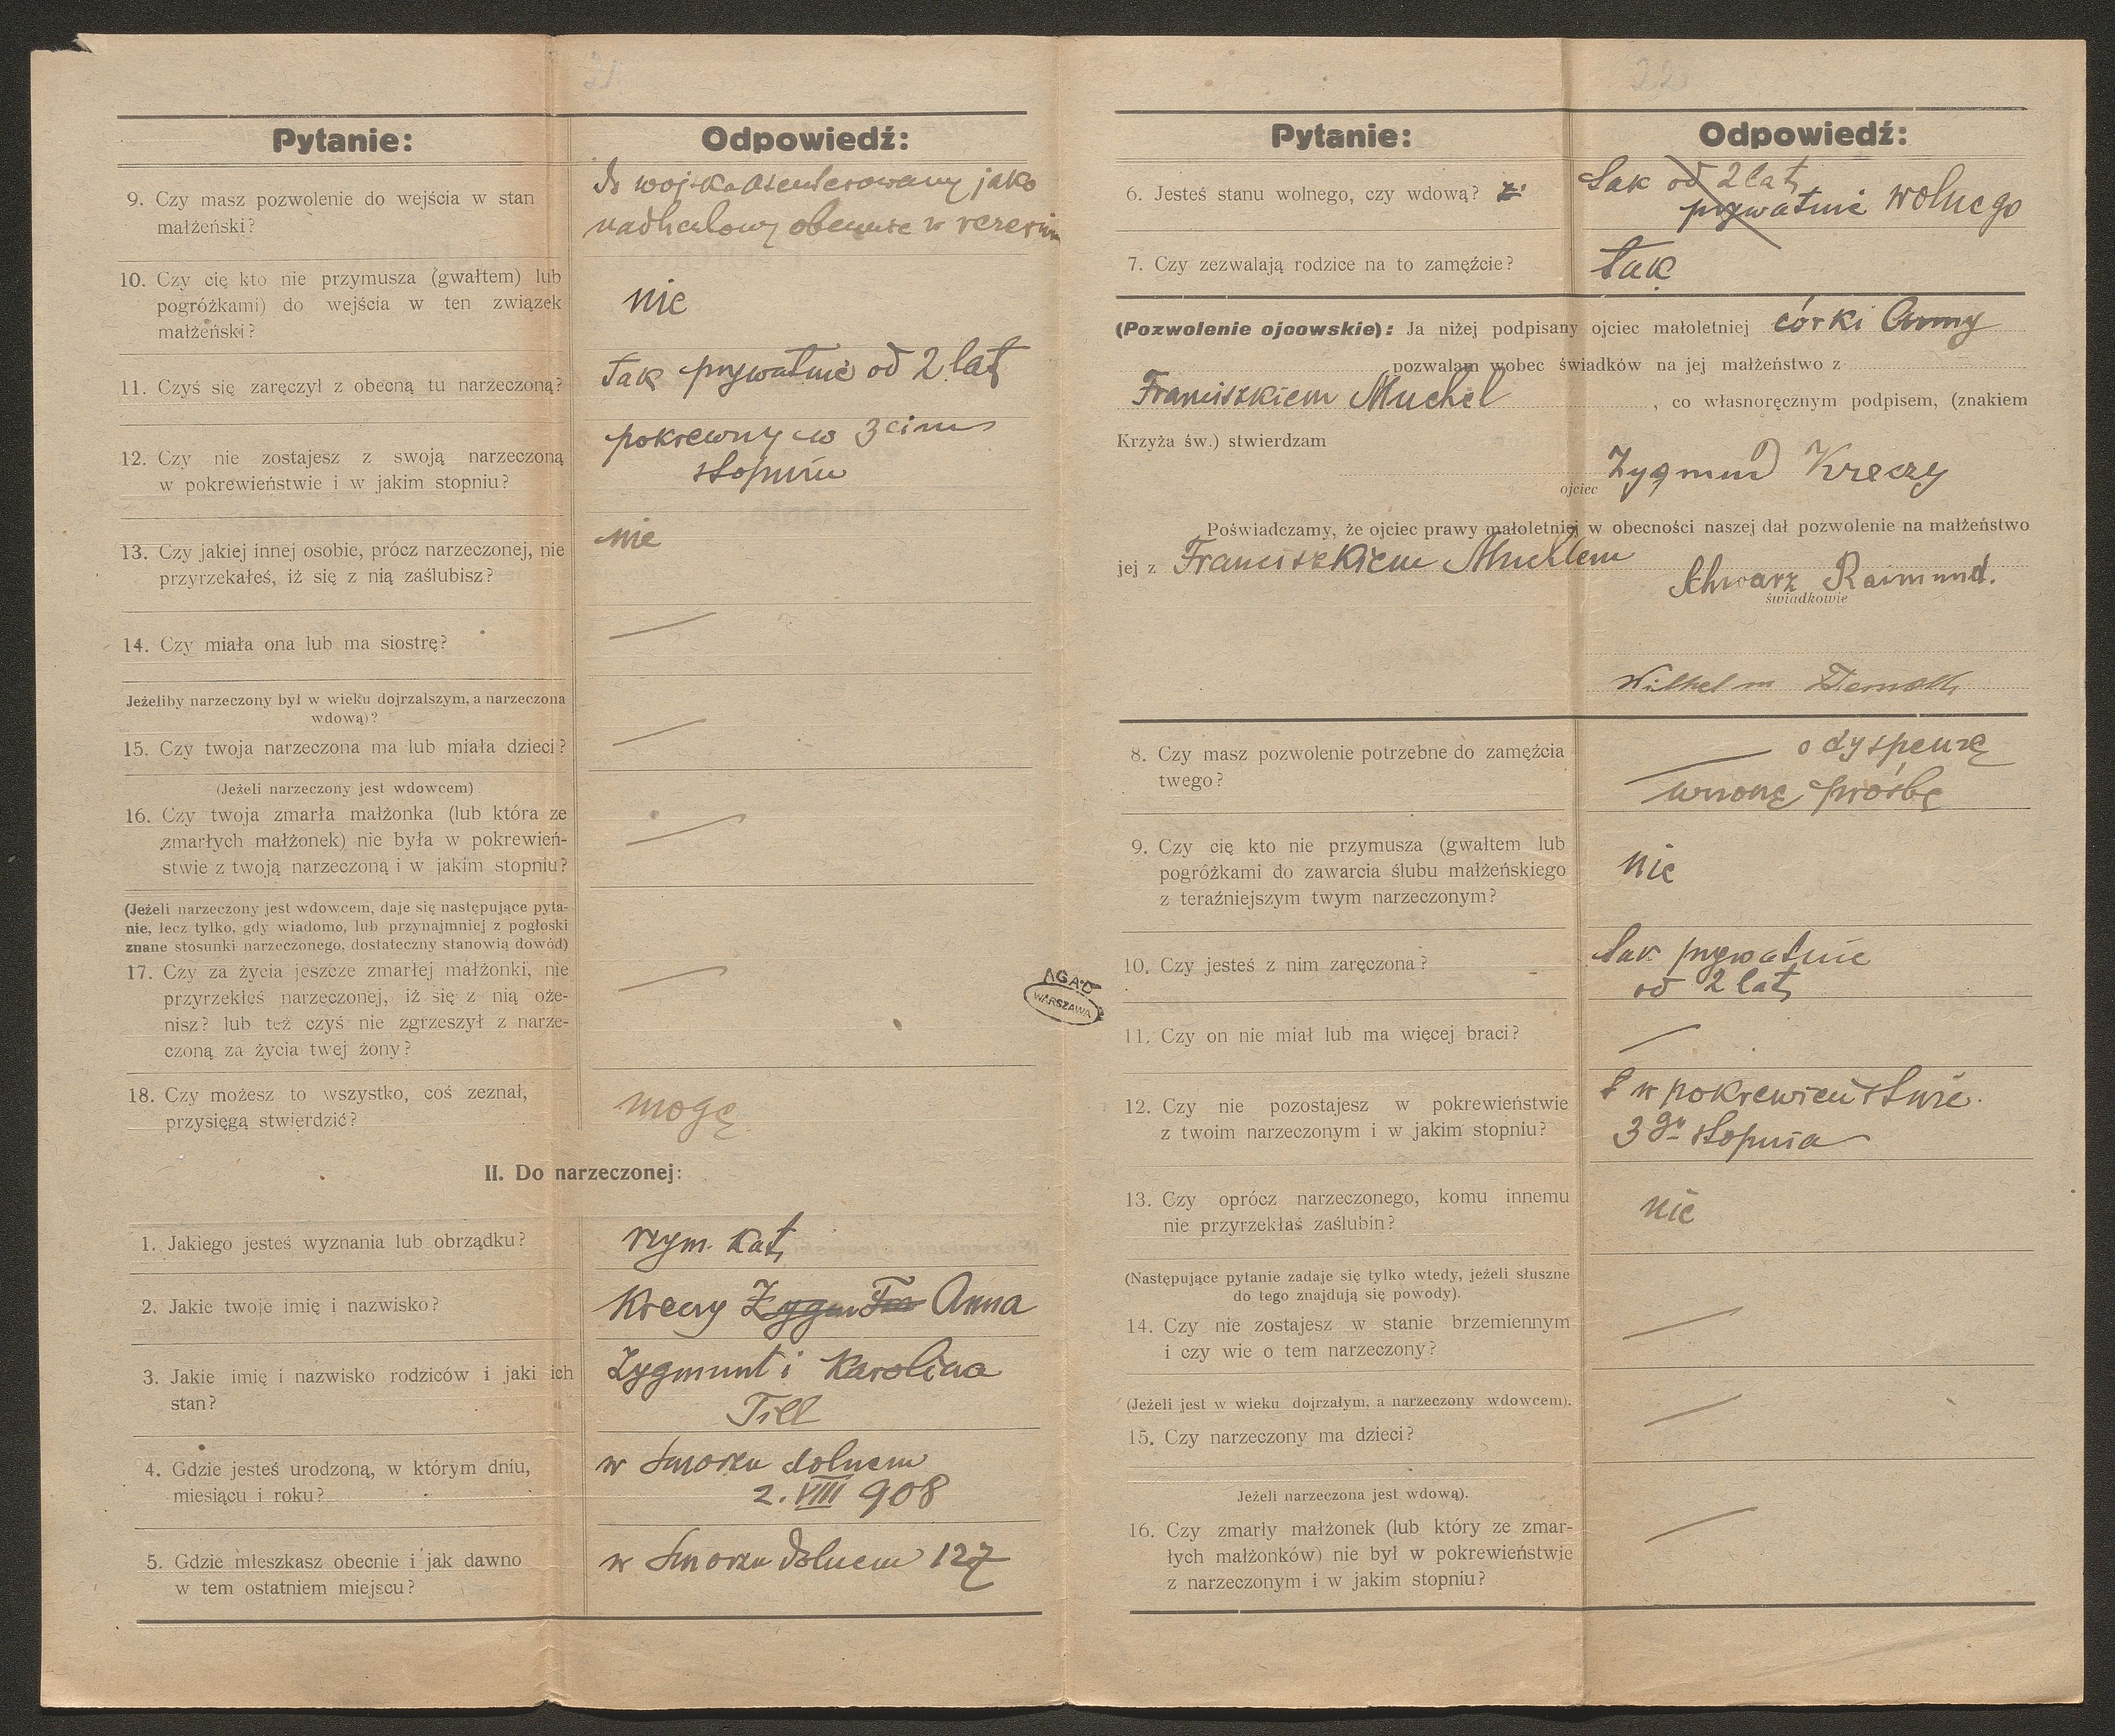 21.
Pytanie:
Odpowiedź:
9. Czy masz pozwolenie do wejścia w stan
małżeński?
do wojska asenterowany jako
nadliczbowy obecnie w rezerwie
10. Czy cię kto nie przymusza (gwałtem) lub
pogróżkami) do wejścia w ten związek
małżeński?
nie
11. Czyś się zaręczył z obecną tu narzeczoną?
Tak prywatnie od 2 lat
12. Czy nie zostajesz z swoją narzeczoną
w pokrewieństwie i w jakim stopniu?
pokrewny w 3cim
stopniu
13. Czy jakiej innej osobie, prócz narzeczonej, nie
przyrzekałeś, iż się z nią zaślubisz?
nie
14. Czy miała ona lub ma siostrę?
Jeżeliby narzeczony był w wieku dojrzalszym, a narzeczona
wdową)?
15. Czy twoja narzeczona ma lub miała dzieci?
(Jeżeli narzeczony jest wdowcem)
16. Czy twoja zmarła małżonka (lub która ze
zmarłych małżonek) nie była w pokrewień-
stwie z twoją narzeczoną i w jakim stopniu?
(Jeżeli narzeczony jest wdowcem, daje się następujące pyta-
nie, lecz tylko, gdy wiadomo, lub przynajmniej z pogłoski
znane stosunki narzeczonego, dostateczny stanowią dowód)
17. Czy za życia jeszcze zmarłej małżonki, nie
przyrzekłeś narzeczonej, iż się z nią oże-
nisz? lub też czyś nie zgrzeszył z narze-
czoną za życia twej żony?
18. Czy możesz to wszystko, coś zeznał,
przysięgą stwierdzić?
mogę
II. Do narzeczonej:
1. Jakiego jesteś wyznania lub obrządku?
rzym. kat.
2. Jakie twoje imię i nazwisko?
Kreczy Anna
3. Jakie imię i nazwisko rodziców i jaki ich
stan?
Zygmunt i Karolina
Till
4. Gdzie jesteś urodzoną, w którym dniu,
miesiącu i roku?
w Smorzu dolnem
2. VIII 908
5. Gdzie mieszkasz obecnie i jak dawno
w tem ostatniem miejscu?
w Smorzu dolnem 127
AGAD
WARSZAWA
22
Pytanie:
Odpowiedź:
6. Jesteś stanu wolnego, czy wdową?
tak od 2 lat
prywatnie wolnego
7. Czy zezwalają rodzice na to zamęźcie?
tak
(Pozwolenie ojcowskie): Ja niżej podpisany ojciec małoletniej córki Anny
pozwalam wobec świadków na jej małżeństwo z
Franciszkiem Muchel, co własnoręcznym podpisem, (znakiem
Krzyża św.) stwierdzam
ojciec Zygmund Kreczy
Poświadczamy, że ojciec prawy małoletniej w obecności naszej dał pozwolenie na małżeństwo
jej z Franciszkiem Muchlem
Schwarz Raimund.
świadkowie
Wilhelm
8. Czy masz pozwolenie potrzebne do zamęźcia
twego?
o dyspenzę
wnoszę prośbę
9. Czy cię kto nie przymusza (gwałtem lub
pogróżkami do zawarcia ślubu małżeńskiego
z teraźniejszym twym narzeczonym?
nie
10. Czy jesteś z nim zaręczona?
tak prywatnie
od 2 lat
11. Czy on nie miał lub ma więcej braci?
12. Czy nie pozostajesz w pokrewieństwie
z twoim narzeczonym i w jakim stopniu?
w pokrewieństwie
3go stopnia
13. Czy oprócz narzeczonego, komu innemu
nie przyrzekłaś zaślubin?
nie
(Następujące pytanie zadaje się tylko wtedy, jeżeli słuszne
do tego znajdują się powody).
14. Czy nie zostajesz w stanie brzemiennym
i czy wie o tem narzeczony?
(Jeżeli jest w wieku dojrzałym, a narzeczony wdowcem).
15. Czy narzeczony ma dzieci?
Jeżeli narzeczona jest wdową).
16. Czy zmarły małżonek (lub który ze zmar-
łych małżonków) nie był w pokrewieństwie
z narzeczonym i w jakim stopniu?